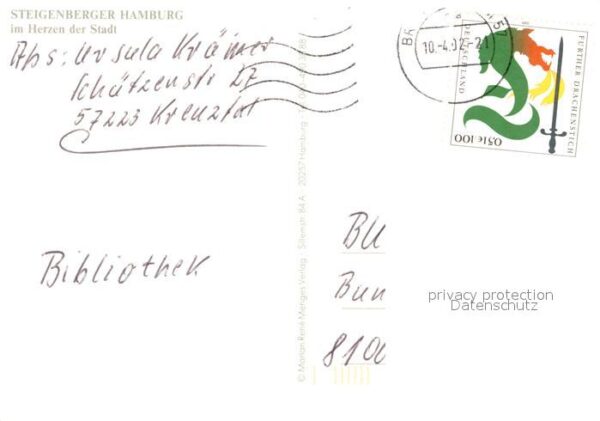 STEIGENBERGER HAMBURG
im Herzen der Stadt
Abs: Ursula Krämer
Schützenstr 27
57223 Kreuztal
Bibliothek
© Marion René Menges Verlag · Sillemstr. 84 A · 20257 Hamburg
BR
57
10.-4.02-21
DEUTSCHLAND
FURTHER DRACHENSTICH
0,51€ 100
BU
Bun
8100
privacy protection
Datenschutz